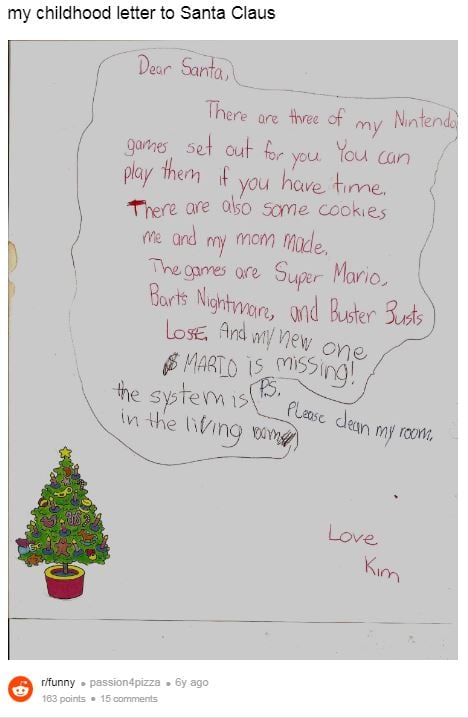 my childhood letter to Santa Claus
Dear Santa,
There are three of my Nintendo
games set out for you. You can
play them if you have time.
There are also some cookies
me and my mom made.
The games are Super Mario,
Bart's Nightmare, and Buster Busts
LOSE. And my new one
MARIO is missing!
the system is
in the living room
P.S.
Please clean my room.
Love
Kim
r/funny • passion4pizza • 6y ago
163 points • 15 comments